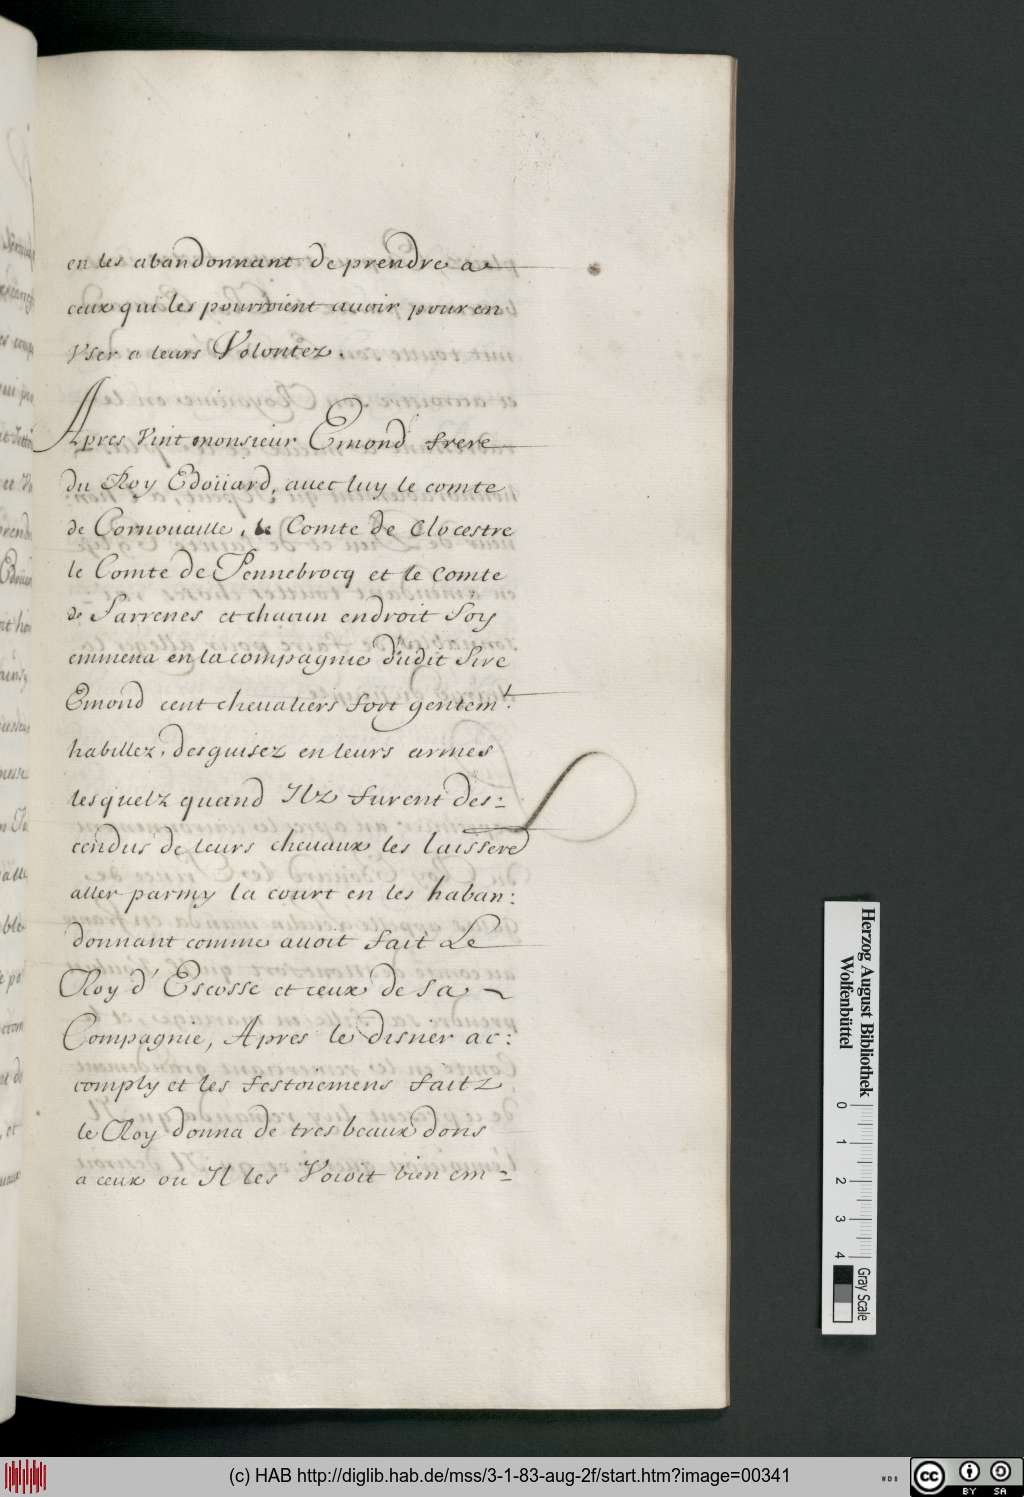 en les abandonnant de prendre a
ceux qui les pourroient auoir pour en
Vser a leurs Volontez.
Apres Vint monsieur Emond frere
du Roy Edoüard, auec luy le comte
de Cornouaille, le Comte de Clocestre
le Comte de Pennebrocq et le Comte
de Sarrenes et chacun endroit Soy
emmena en la compagnie dudit Sire
Emond cent cheualiers fort gentemt.
habillez, desguisez en leurs armes
lesquelz quand Ilz furent des=
cendus de leurs cheuaux les laissere
aller parmy la court en les haban:
donnant comme auoit fait Le
Roy d'Escosse et ceux de sa
Compagnie, Apres le disner ac:
comply et les festoiemens faitz
le Roy donna de tres beaux dons
a ceux ou Il les Voioit bien em=
Herzog August Bibliothek
Wolfenbüttel
0 1 2 3 4
Gray Scale
(c) HAB http://diglib.hab.de/mss/3-1-83-aug-2f/start.htm?image=00341
WDB
CC BY SA